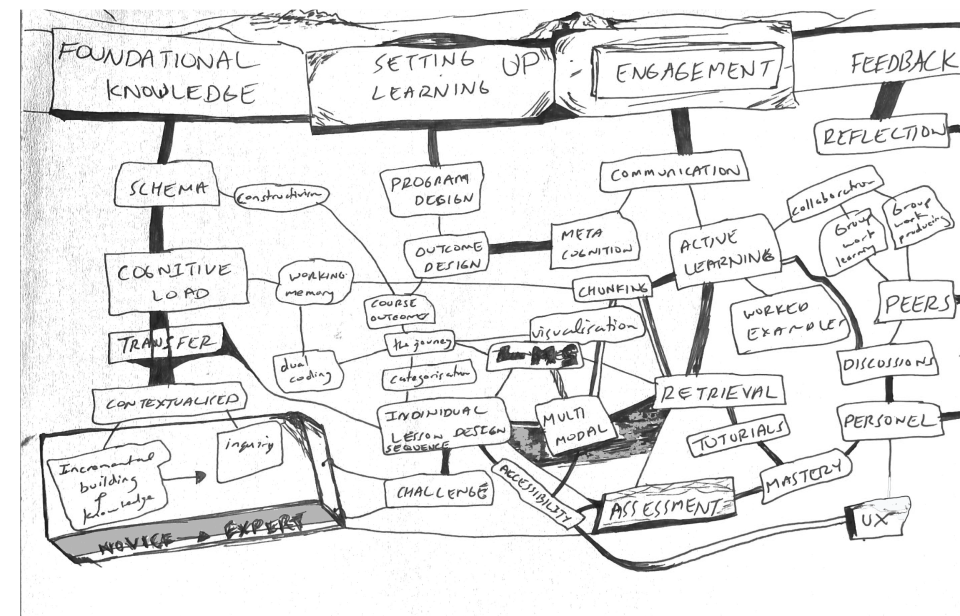 FOUNDATIONAL
KNOWLEDGE
SETTING UP
LEARNING
ENGAGEMENT
FEEDBACK
REFLECTION
SCHEMA
Constructivism
PROGRAM
DESIGN
COMMUNICATION
collaboration
Group
work
producing
Group
work
learning
OUTCOME
DESIGN
META
COGNITION
ACTIVE
LEARNING
COGNITIVE
LOAD
WORKING
memory
CHUNKING
PEERS
COURSE
OUTCOME
WORKED
EXAMPLES
TRANSFER
the journey
visualisation
DISCUSSIONS
dual
coding
categorisation
RETRIEVAL
CONTEXTUALISED
INDIVIDUAL
LESSON DESIGN
SEQUENCE
MULTI
MODAL
PERSONEL
TUTORIALS
inquiry
Incremental
building
of
knowledge
CHALLENGE
ACCESSIBILITY
ASSESSMENT
MASTERY
UX
NOVICE → EXPERT